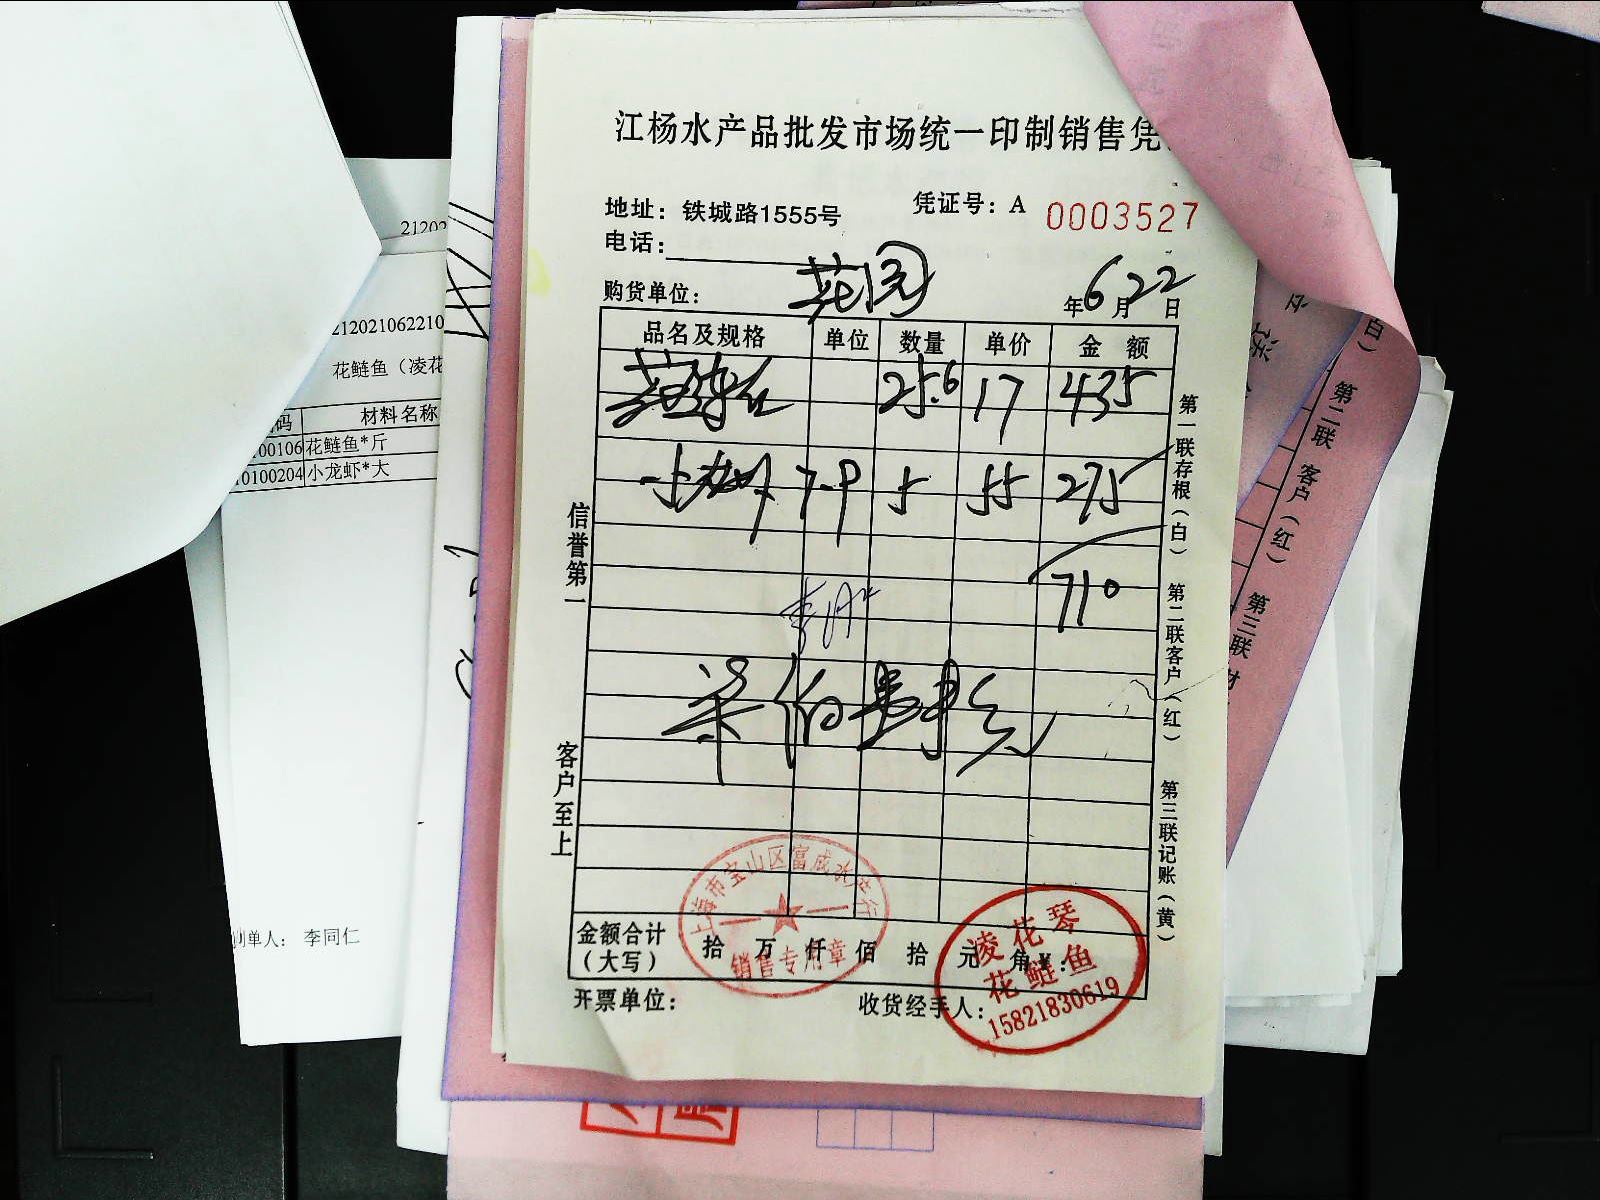 江杨水产品批发市场统一印制销售凭
地址：铁城路1555号
凭证号：A 0003527
电话：
购货单位： 花园
年6月22日
品名及规格 单位 数量 单价 金额
花鲢 25.6 17 435
小龙虾 7-9 5 55 275
710
柒佰壹拾元
金额合计（大写） 拾 万 仟 佰 拾 元 角 ¥：
开票单位：
收货经手人：
信誉第一
客户至上
第一联存根（白） 第二联客户（红） 第三联记账（黄）
上海市宝山区富成水产行
销售专用章
凌花琴
花鲢鱼
15821830619
21202
212021062210
花鲢鱼（凌花
码 材料名称
00106 花鲢鱼*斤
0100204 小龙虾*大
制单人： 李同仁
白）
第二联 客户（红）
第三联